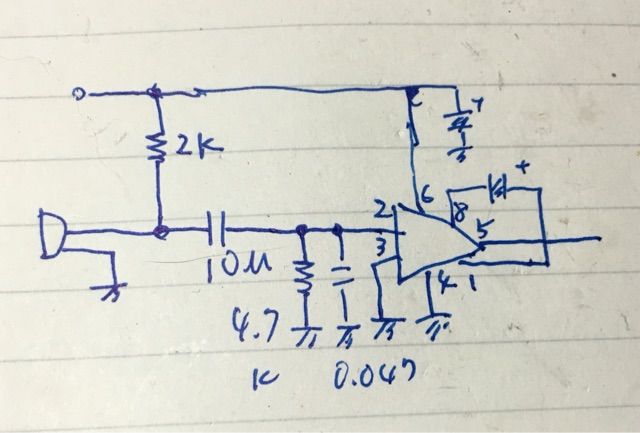 +
2K
+
6
8
2
5
3
10µ
4
1
4.7
K
0.047